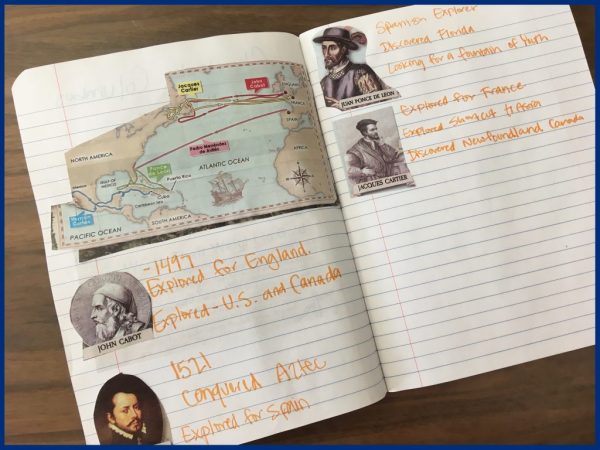 Jacques
Cartier
John
Cabot
ENGLAND
FRANCE
SPAIN
NORTH AMERICA
Pedro Menéndez
de Avilés
ATLANTIC OCEAN
AFRICA
GULF OF
MEXICO
Puerto Rico
Cuba
Caribbean Sea
SOUTH AMERICA
PACIFIC OCEAN
-1497
Explored for England.
Explored - U.S. and Canada
JOHN CABOT
1521
Conquered Aztec
Explored for Spain
Spanish Explorer
Discovered Florida
Looking for a fountain of Youth
JUAN PONCE DE LEON
Explored for France
Explored
Discovered Newfoundland, Canada
JACQUES CARTIER